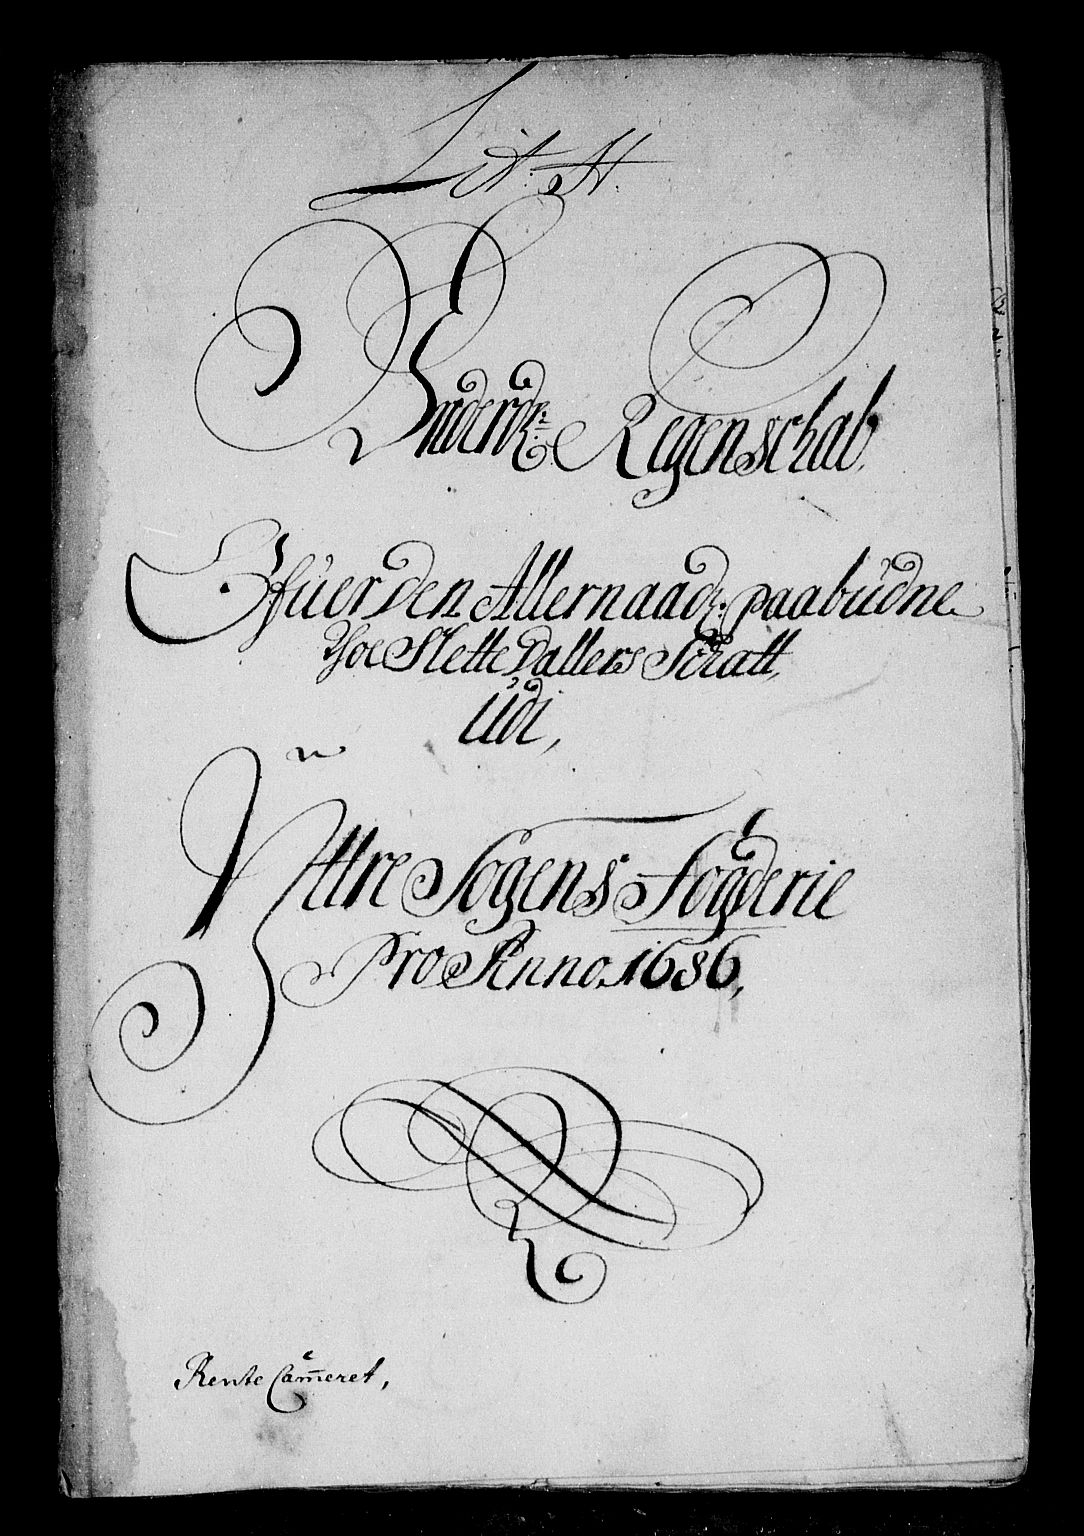 Lit: A:
Underdr: Regenschab
Ofuer den Allernaadr: paabudne
Thoe Slette Dallers Schatt,
Udi,
Yttre Sogens Fogderie
Pro Anno. 1686,
Rente Cam̄eret,